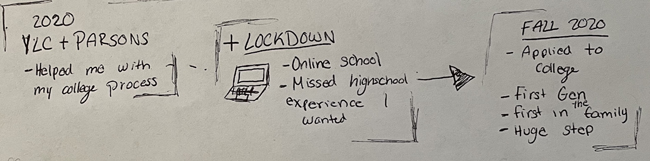 2020
YLC + PARSONS
- Helped me with
my college process
+ LOCKDOWN
- Online school
- Missed highschool
experience I
wanted
FALL 2020
- Applied to
college
- First Gen
- first in the family
- Huge step